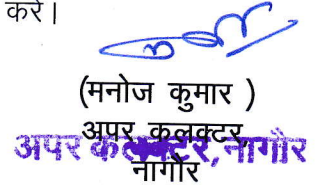 करें।
(मनोज कुमार )
अपर कलक्टर,
अपर कलक्टर, नागौर
नागौर